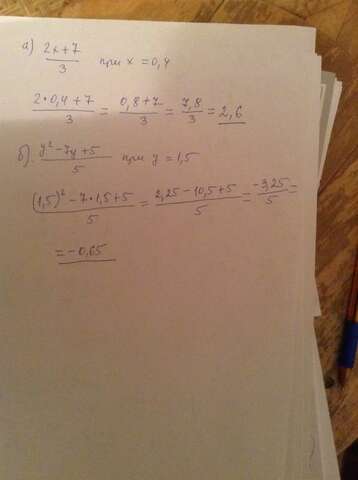 а) (2x+7)/3 при x=0,4
(2·0,4+7)/3 = (0,8+7)/3 = 7,8/3 = 2,6
б) (y²-7y+5)/5 при y=1,5
((1,5)²-7·1,5+5)/5 = (2,25-10,5+5)/5 = -3,25/5 =
= -0,65